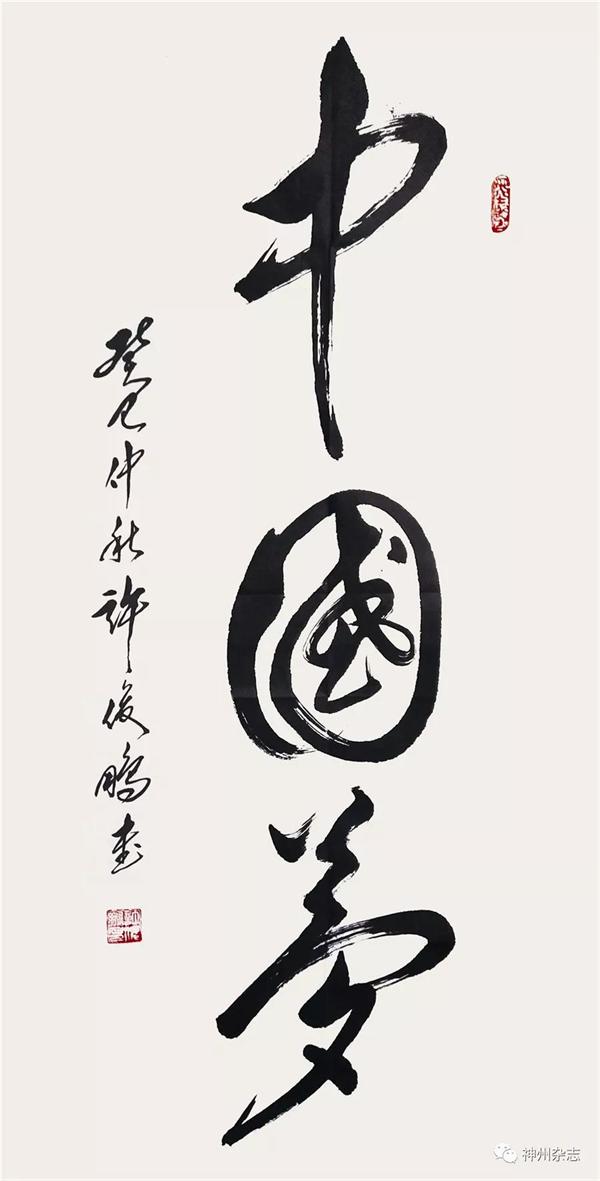 中國夢
癸巳仲秋許俊鵬書
神州杂志